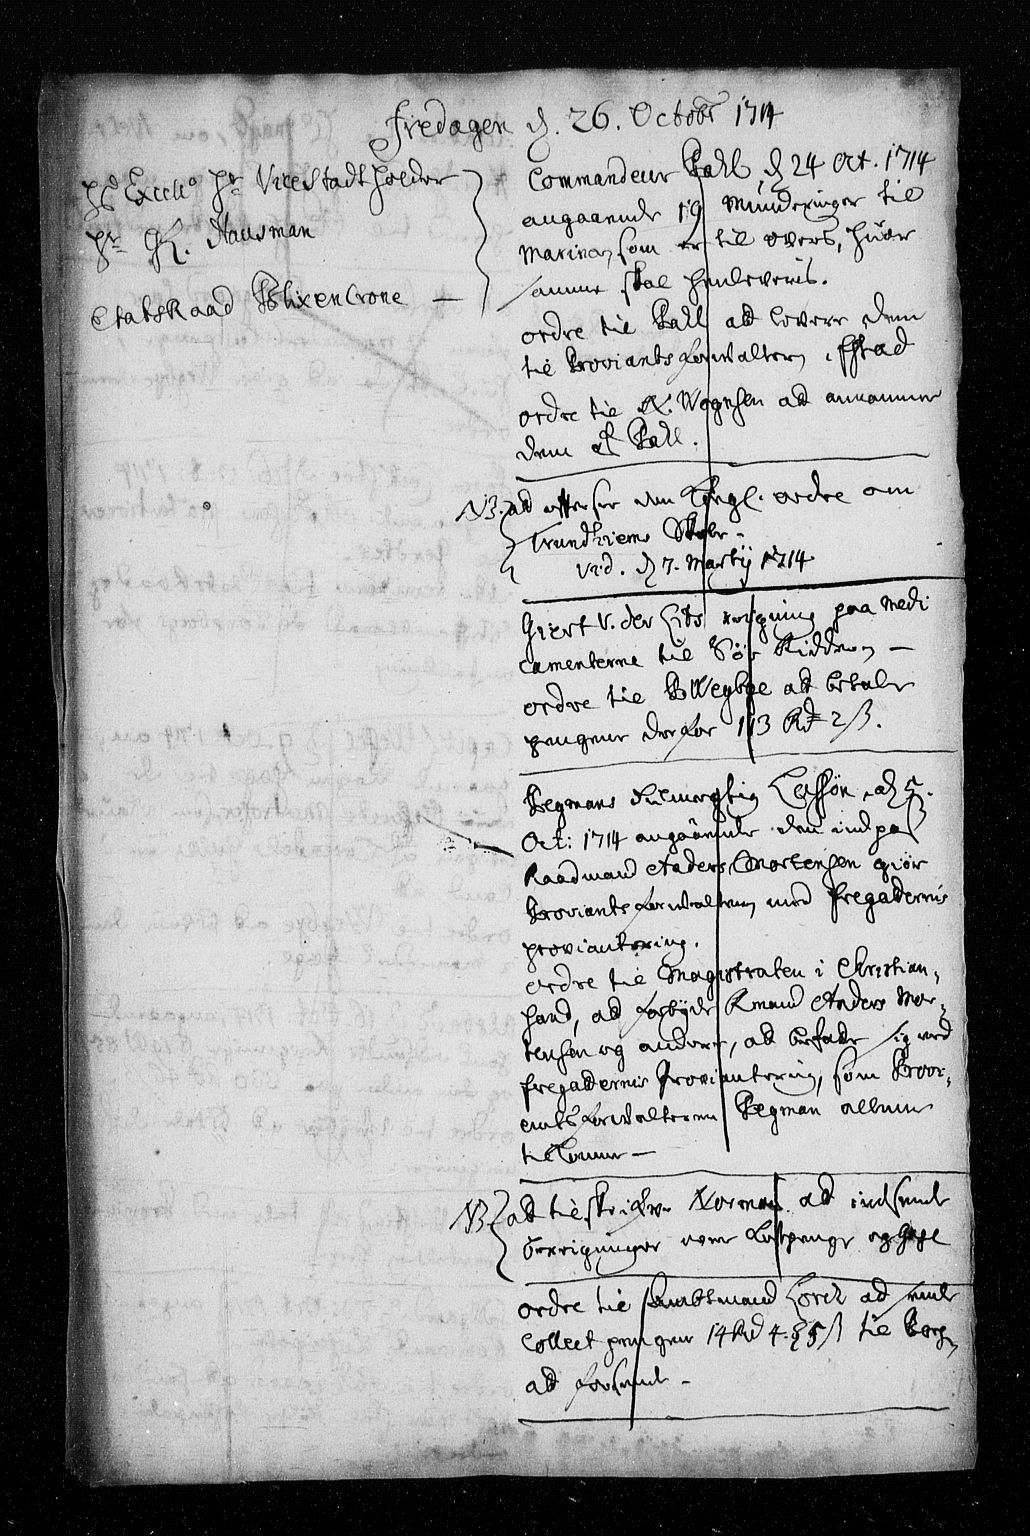 Fredagen d. 26. Octobr 1714
Hs Excell. Hr Vice Stadtholder
Hr G. Hausman
Etatsraad Blixencrone —
Commandeur Pahl d 24 Oct. 1714
angaaende 19 Munderinger til
Marinen som er til overs, huor
samme skal henleveris.
ordre til Pall at levere dem
til Proviantsforwalteren i Fstad
ordre til Wognsen at annamme
dem af Pall.
NB. at efftersee den Kongl. ordre om
Trundhiems
vid. d 7. Martij 1714
Giert v. der Lids regning paa Medi
camenterne til Söe
ordre til Wegbye at betale
pengene derfor 113 Rd 2 ß.
Begmans d. 5.
Oct: 1714 angaaende den indpas
Raadmand Anders Mortensen giör
Proviantsforwalteren med Fregadernis
proviantering.
ordre til Magistraten i Christian-
sand, at forbyde Rmand Anders Mor-
tensen og andere, at befatte sig med
Fregadernis Proviantering, som Provi-
antsforwalteren Begman allene
tilkommer —
NB at tilskrifve Norman at indsende
Berigninger over Kostpenge og Gage
ordre til Ambtmand Lörch at sende
Collect pengene 14 Rd 4 ß til Borgn
at forsende —